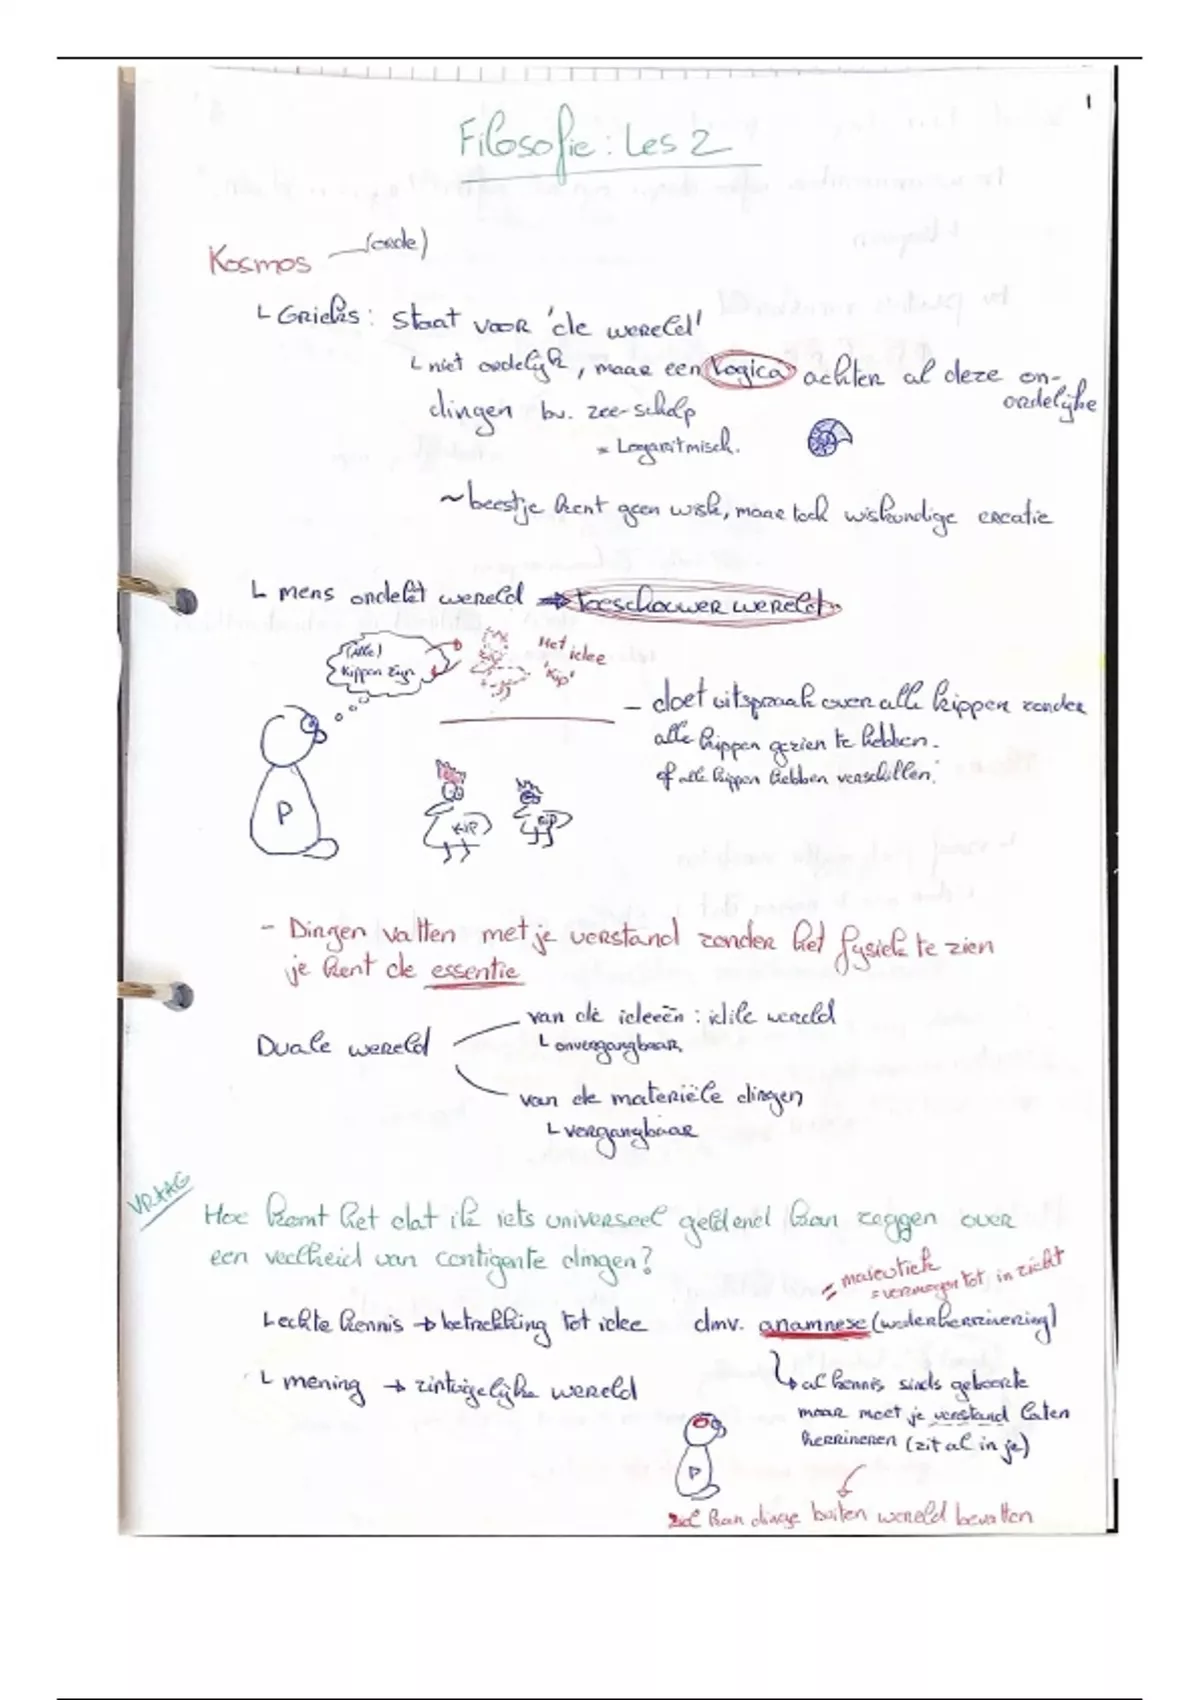 1
Filosofie: Les 2
Kosmos (orde)
└ Grieks: staat voor 'de wereld'
└ niet ordelijk, maar een logica achter al deze on-
ordelijke
dingen bv. zee-schelp
= Logaritmisch.
~ beestje kent geen wisk, maar toch wiskundige creatie
└ mens ondekt wereld ⇒ toeschouwer wereld
(Alle)
kippen zijn
Het idee
'kip'
- doet uitspraak over alle kippen zonder
alle kippen gezien te hebben.
of alle kippen hebben verschillen.
P
KIP
KIP
- Dingen vatten met je verstand zonder het fysiek te zien
je kent de essentie
Duale wereld
van de ideeën : idile wereld
└ onvergangbaar
van de materiële dingen
└ vergangbaar
VRAAG
Hoe komt het dat ik iets universeel geldend kan zeggen over
een veelheid van contigente dingen?
= maieutiek
= vermogen tot in zicht
└ echte kennis → betrekking tot idee dmv. anamnese (wederherrinering)
└ mening → zintuigelijke wereld
↳ al kennis sinds geboorte
maar moet je verstand laten
herrineren (zit al in je)
P
ziel kan dinge buiten wereld bevatten